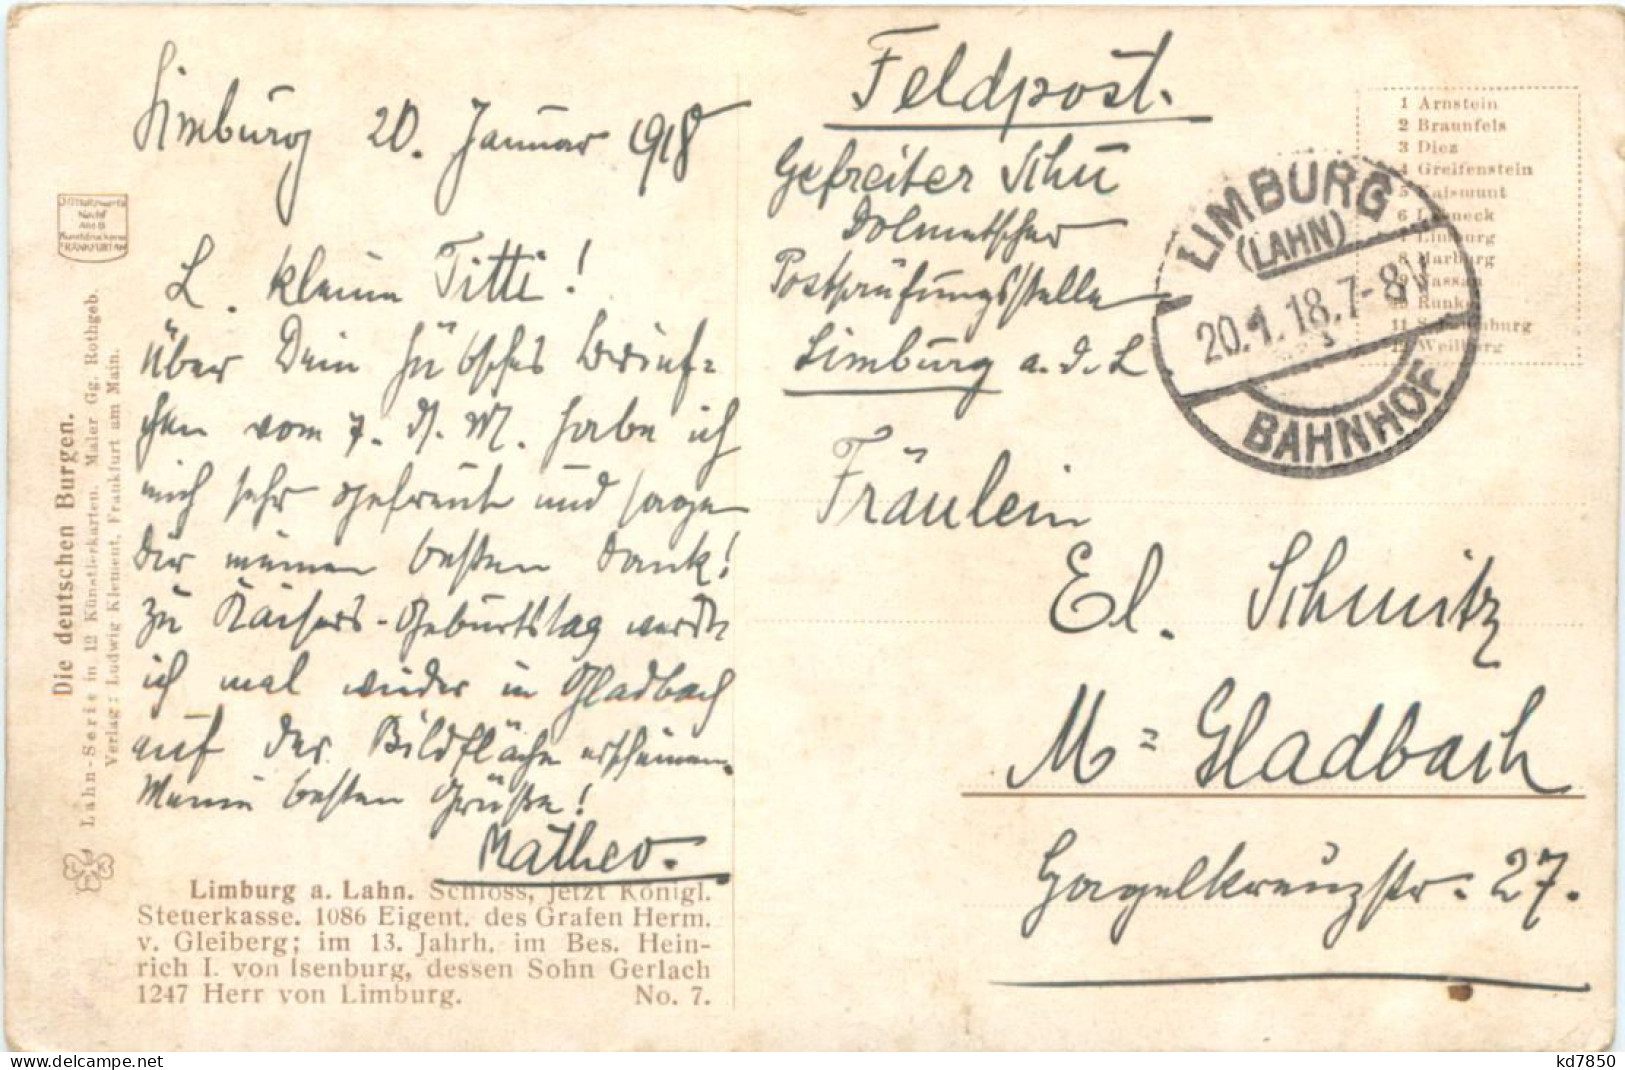 Limburg 20. Januar 1918
L. kleine Titti!
Über Dein hübsches Brief=
chen vom 7. ds. M. habe ich
mich sehr gefreut und sage
Dir meinen besten Dank!
Zu Kaisers-Geburtstag werde
ich mal wieder in Gladbach
auf der Bildfläche erscheinen.
Meine besten Grüße!
Matheo.
Limburg a. Lahn. Schloss, jetzt Königl.
Steuerkasse. 1086 Eigent. des Grafen Herm.
v. Gleiberg; im 13. Jahrh. im Bes. Hein-
rich I. von Isenburg, dessen Sohn Gerlach
1247 Herr von Limburg. No. 7.
Die deutschen Burgen.
Lahn-Serie in 12 Künstlerkarten. Maler Gg. Rothgeb.
Verlag: Ludwig Klement, Frankfurt am Main.
FRANKFURT AM
Feldpost.
Gefreiter Schu
Dolmetscher
Postprüfungsstelle
Limburg a. d. L.
LIMBURG
(LAHN)
20.1.18.7-8N
BAHNHOF
1 Arnstein
2 Braunfels
3 Diez
4 Greifenstein
5 Kalsmunt
6
7 Limburg
8 Marburg
9 Nassau
10 Runkel
11
12 Weilburg
Fräulein
El. Schmitz
M=Gladbach
Gagelkreuzstr. 27.
delcampe.net
kd7850